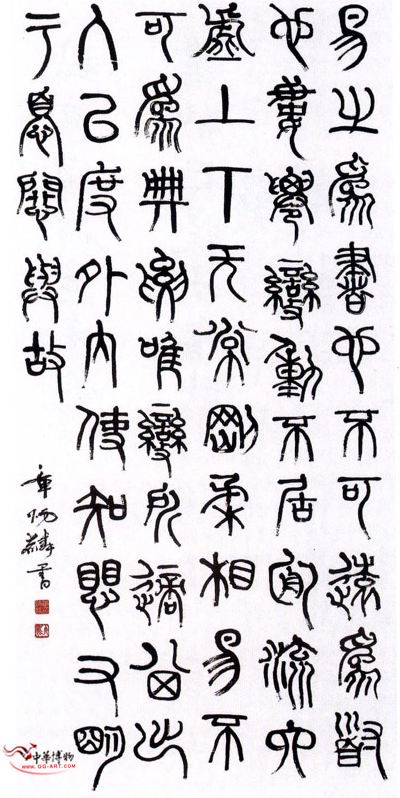 易之為書也不可遠為道
也屢遷變動不居周流六
虛上下无常剛柔相易不
可為典要唯變所適其出
入以度外內使知懼又明
于憂患與故
章炳麟書
中華博物
WWW.GG-ART.COM